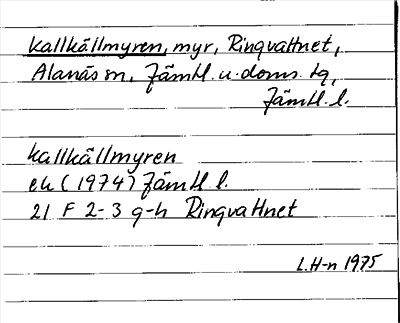 Kallkällmyren, myr, Ringvattnet,
Alanäs sn, Jämtl. n. doms. tg,
Jämtl. l.
Kallkällmyren
ek (1974) Jämtl l.
21 F 2-3 g-h Ringvattnet
L.H-n 1975